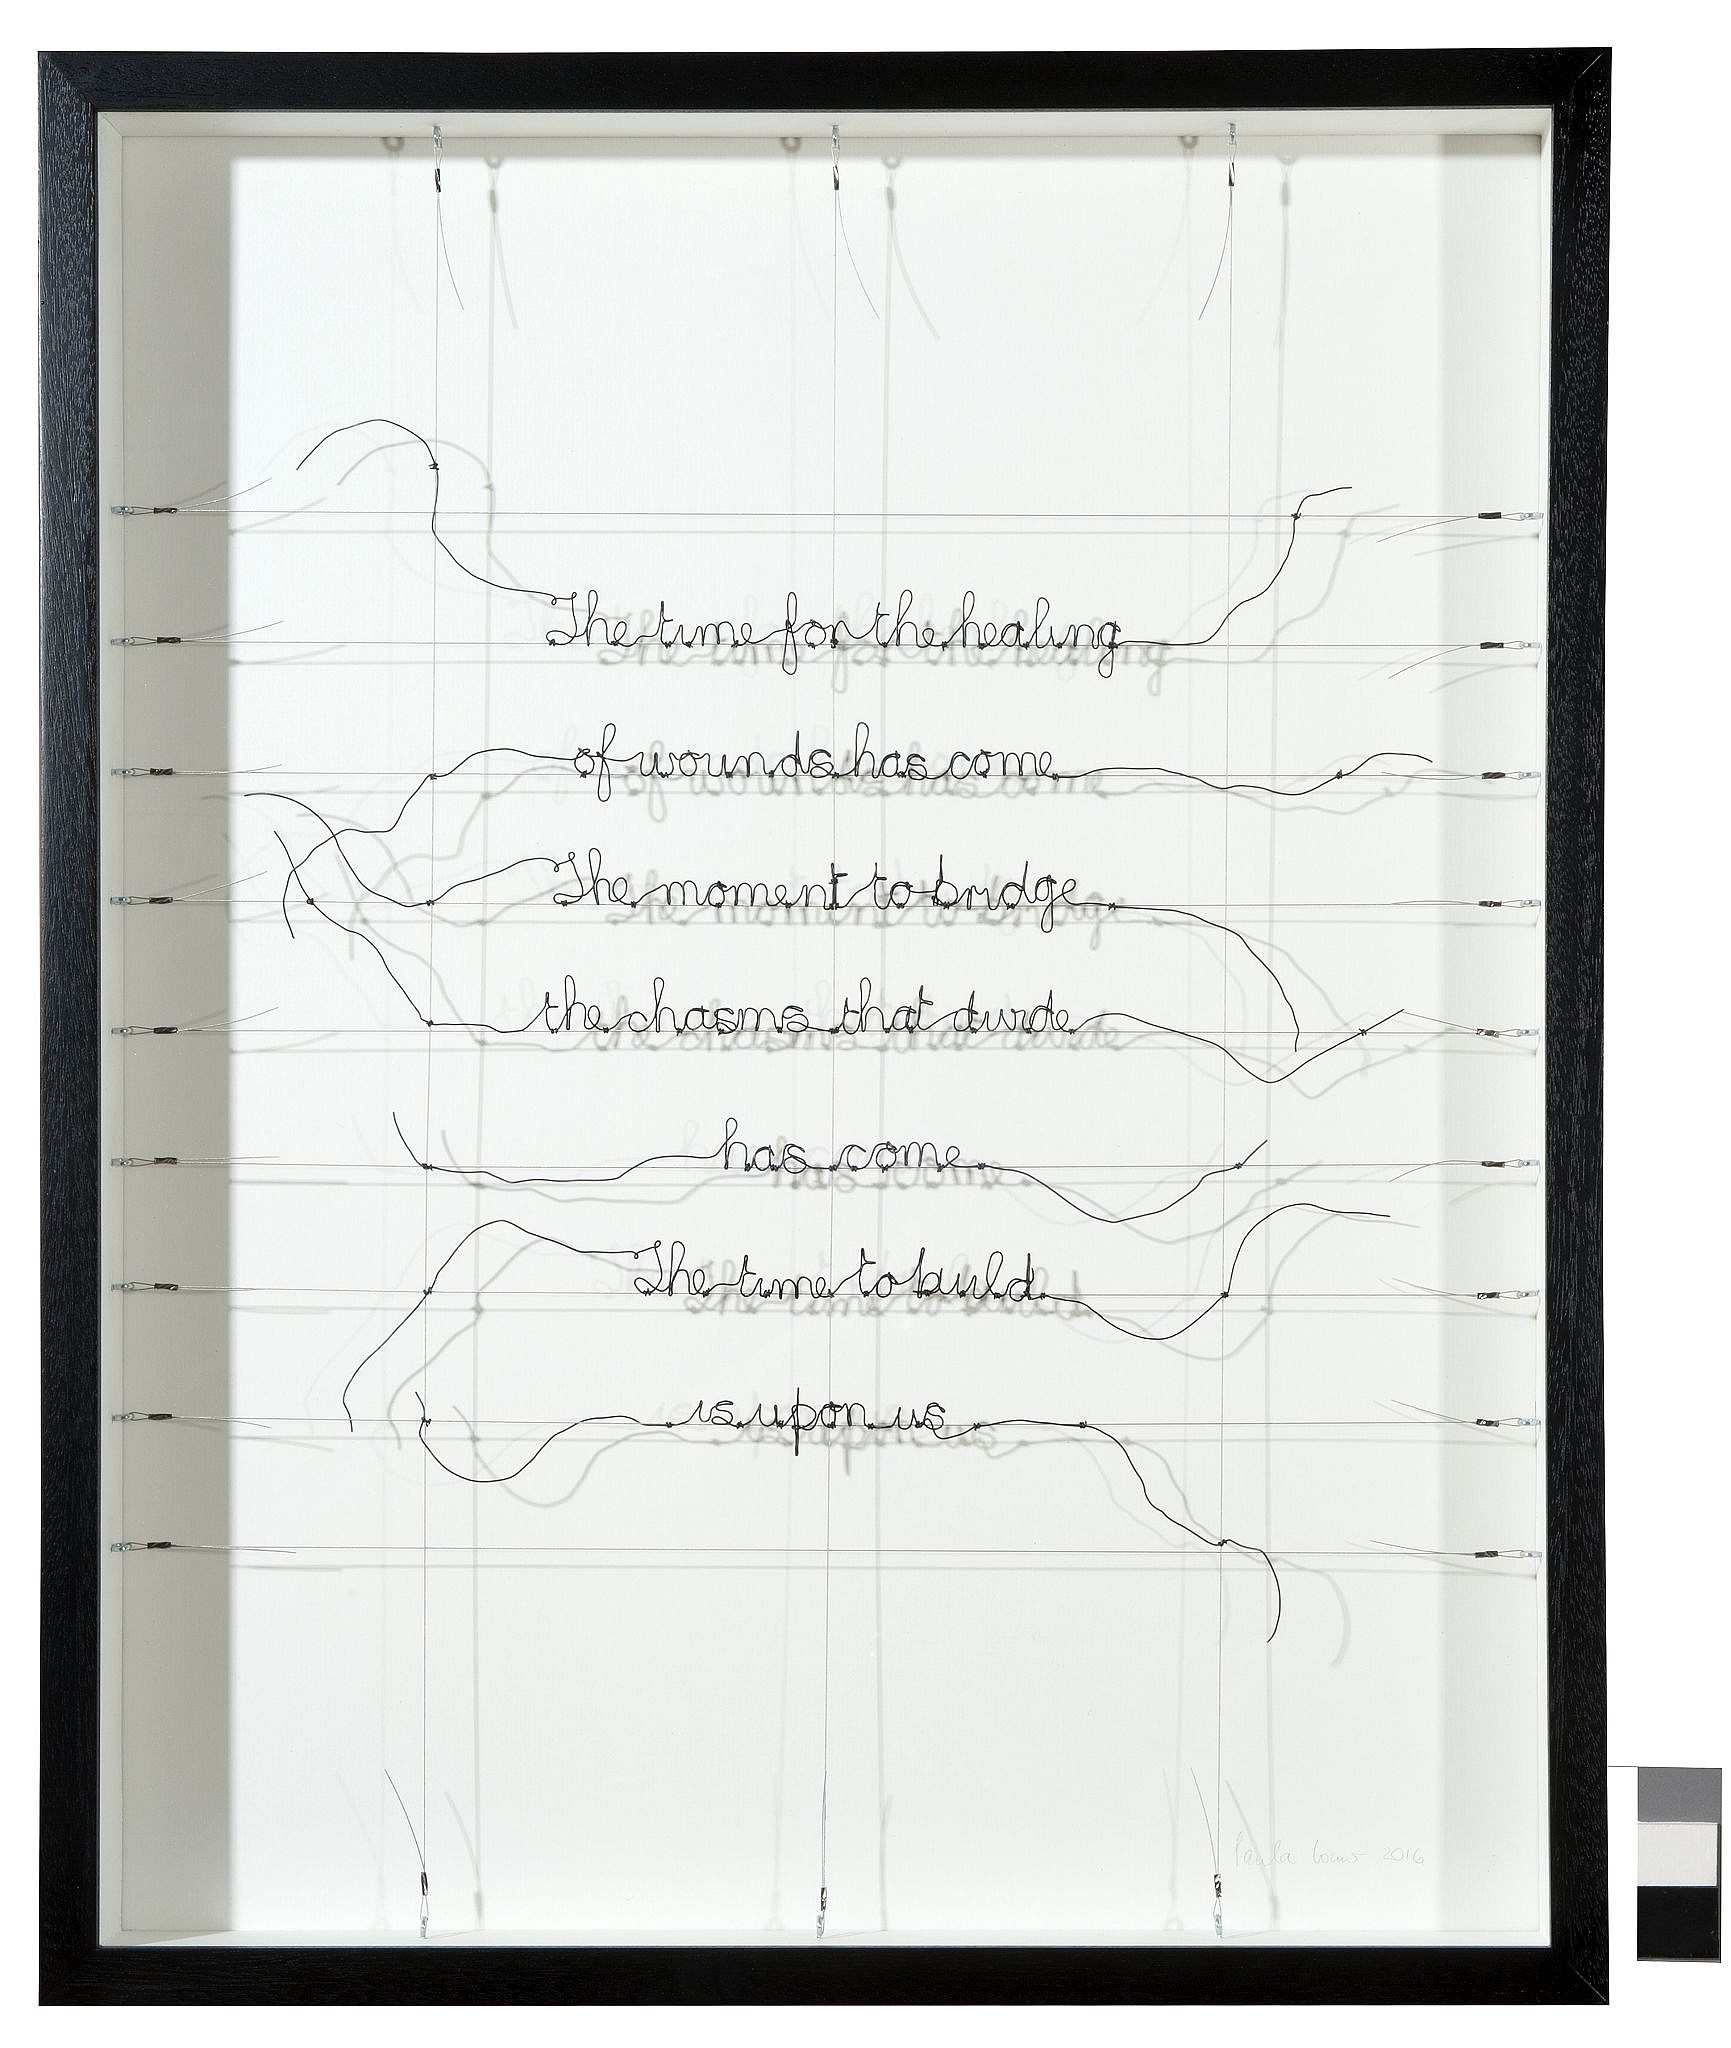 The time for the healing
of wounds has come
The moment to bridge
the chasms that divide
has come
The time to build
is upon us
Paula 2016